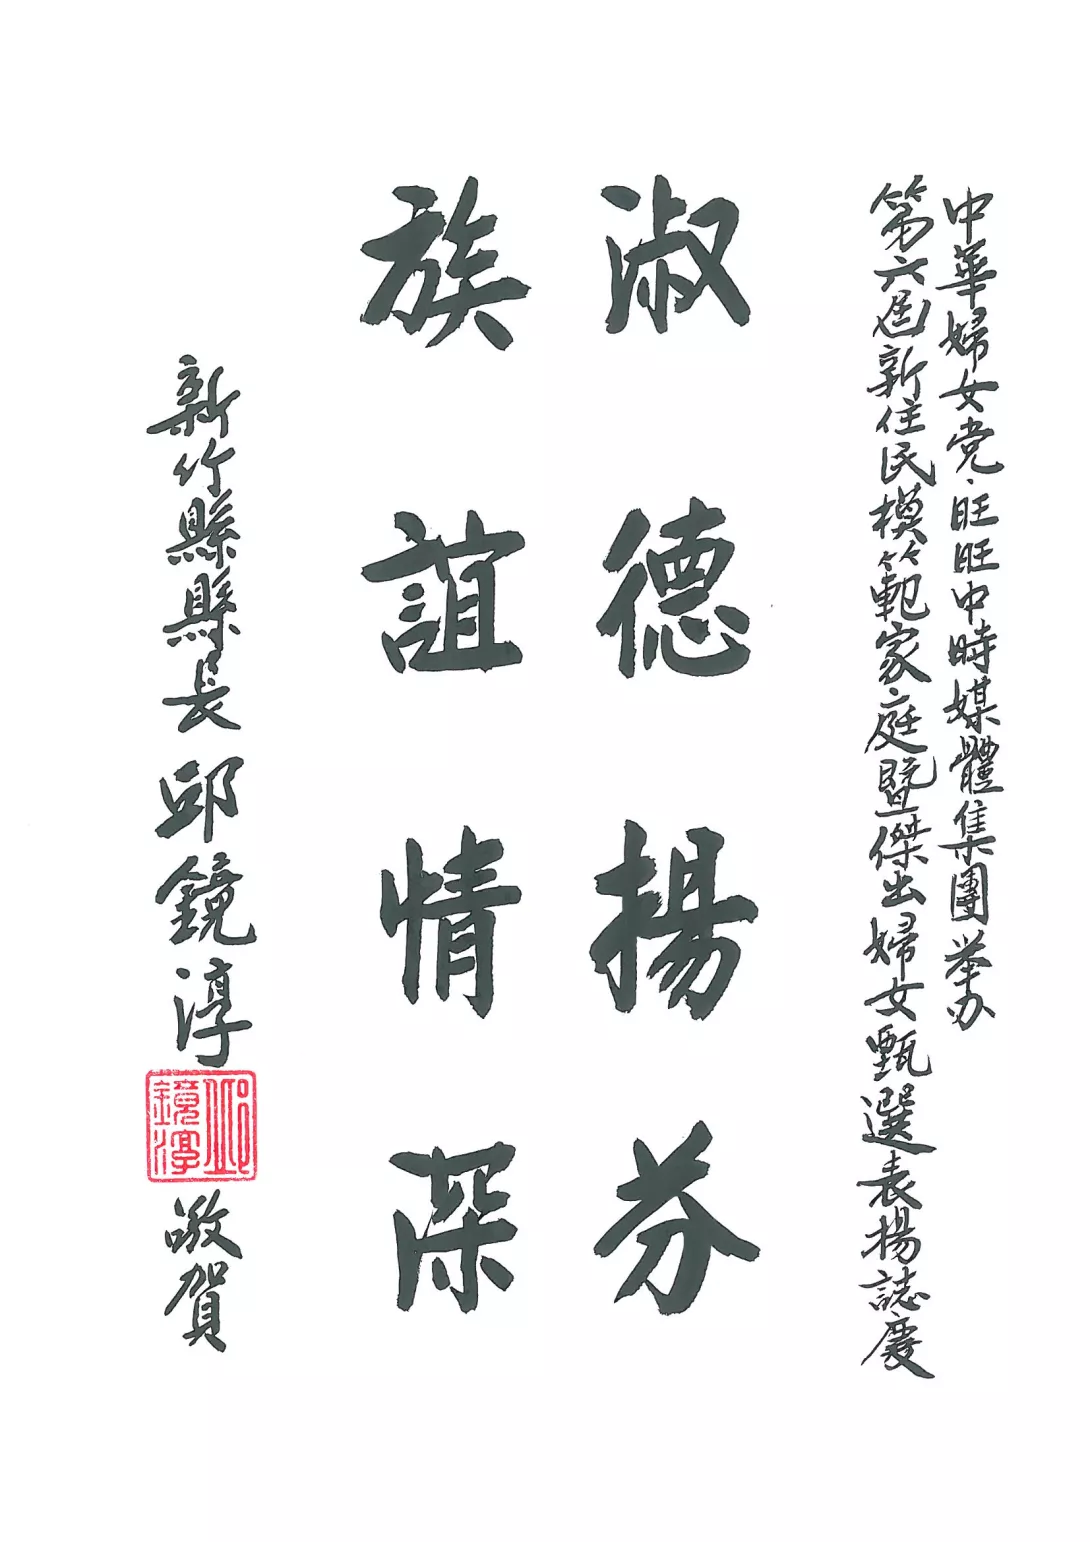 中華婦女党·旺旺中時媒體集團举办
第六屆新住民模範家庭暨傑出婦女甄選表揚誌慶
淑德揚芬
族誼情深
新竹縣縣長邱鏡淳
邱鏡淳
敬賀